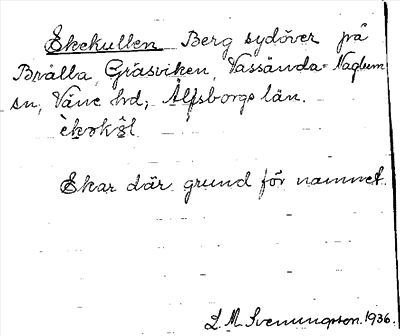 Ekekullen Berg sydöver på
Brålba, Gräsviken, Vassända-Naglum
sn, Väne hd, Älfsborgs län.
Ekar där grund för namnet.
L. M. Svenungsson. 1936.